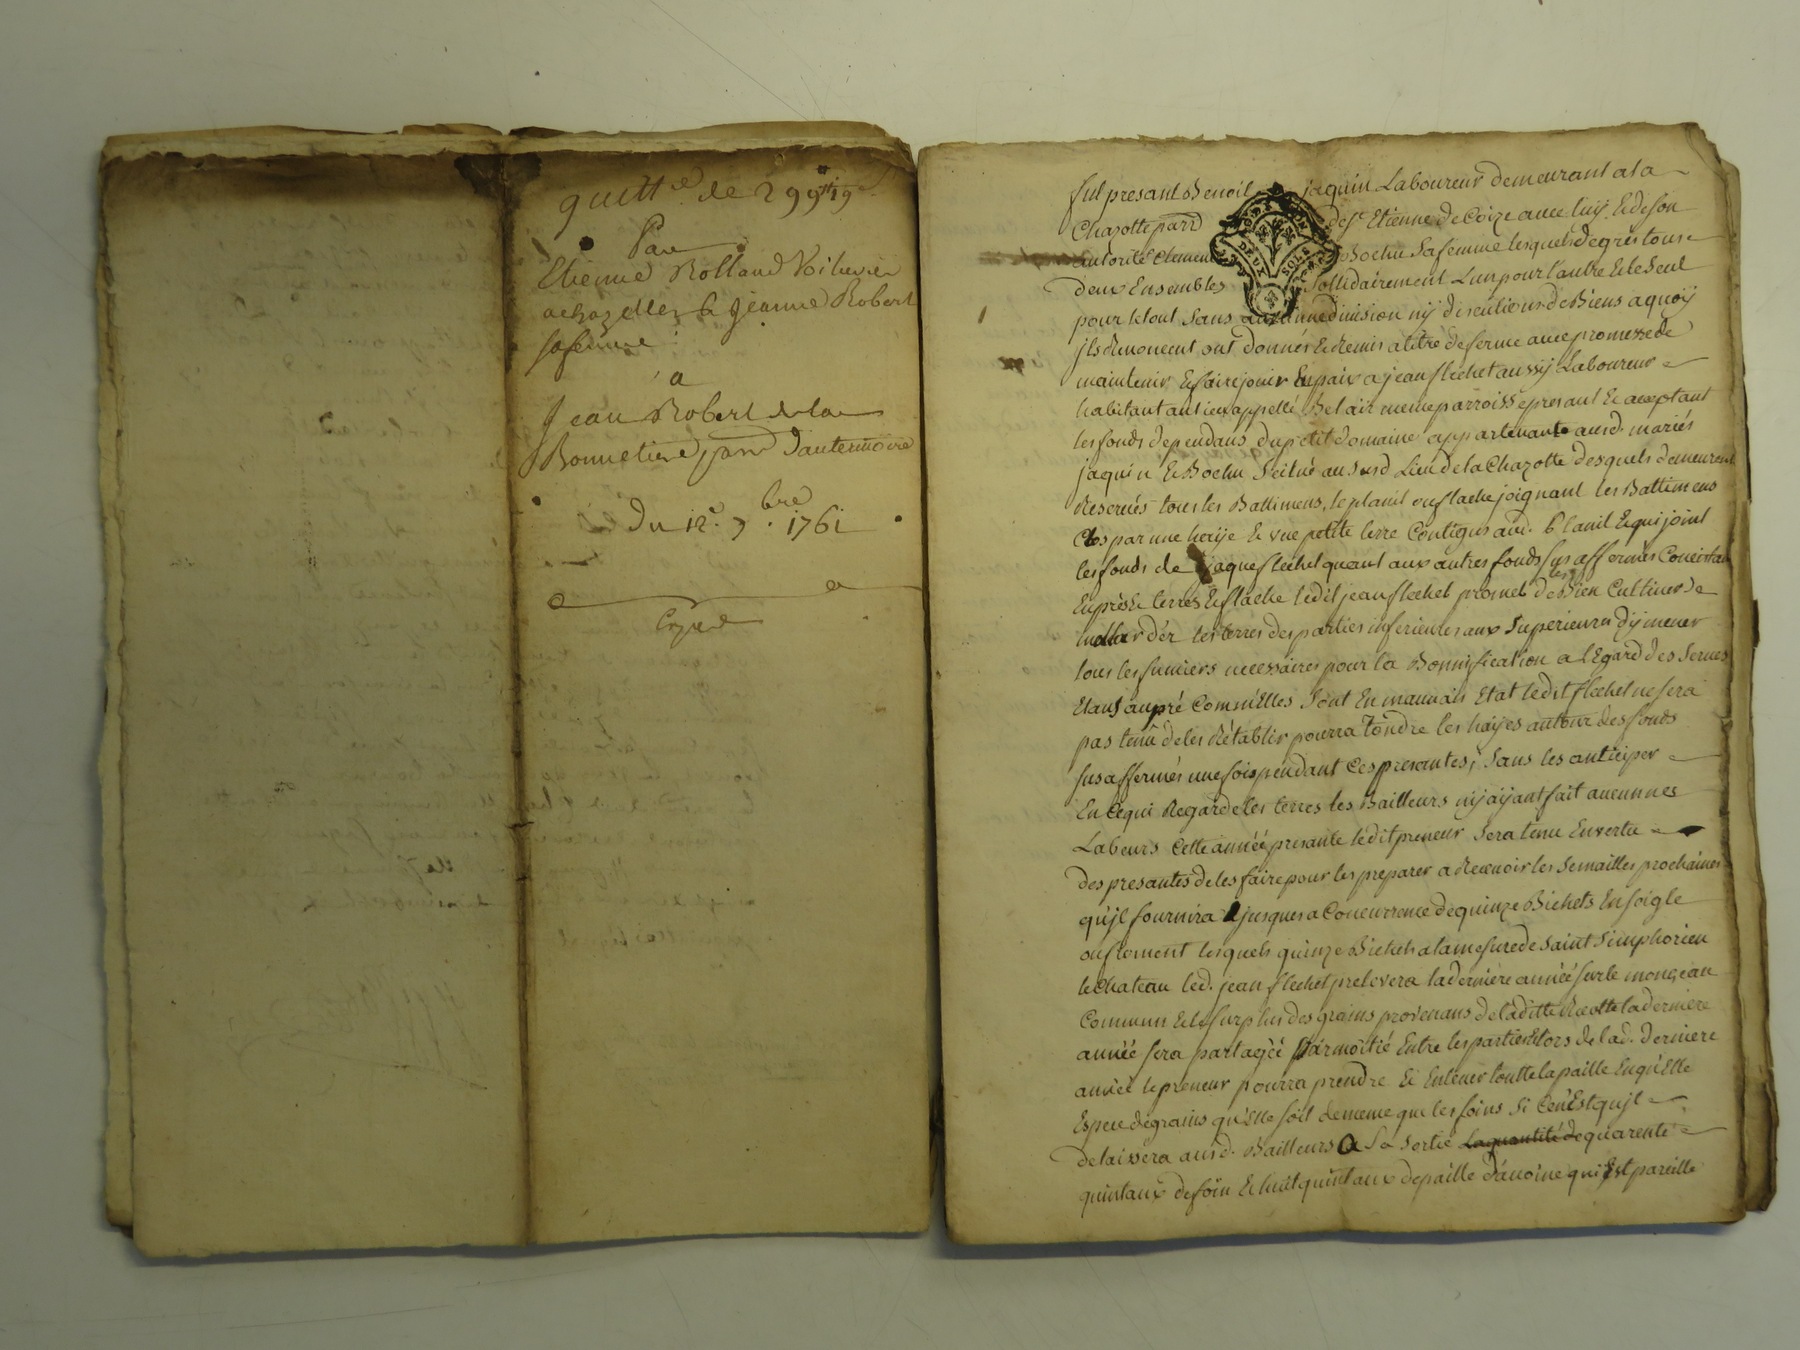 quitt.ce de 299ᵗᵗ 19 s
Par
Etienne Rolland Voiturier
a chazelles & Jeanne Robert
sa femme
a
Jean Robert de la
Bonnetiere parr d'auternoire
Du 12e 7.bre 1761
Exped
fut presant Benoit jaquin Laboureur demeurant a la
Chazotte parr de st Etienne de Coize avec luy & de son
autorité Bochu sa femme lesquels de gres tous
deux Ensembles sollidairement L'un pour l'autre & le seul
pour le tout sans aucune division ny discutions de Biens a quoy
jls Renoncent ont donnés & Remis a titre de ferme avec promesse de
maintenir & faire jouir En paix a jean flechet aussy Laboureur
habitant au lieu appellé Bel air meme parroisse presant & aceptant
les fonds dependans du petit domaine appartenant ausd. mariés
jaquin & Bochu scitué au susd Lieu de la Chazotte desquels demeurent
Reservés tous les Battimens, le planil ou flache joignant les Battimens
Clos par une haÿe & une petite terre Contigus aud. planil & qui joint
les fonds de jaque flechet quant aux autres fonds sus affermés Concistan
En prés & terres & flache ledit jean flechet promet de les Bien Cultiver de
der les terres des parties inferieures aux superieures d'ÿ mener
tous les fumiers necessaires pour la Bonnification a l'Egard des serves
Etans au pré Comm'Elles sont En mauvais Etat ledit flechet ne sera
pas tenu de les Rétablir pourra tondre les haÿes autour des fonds
sus affermés une fois pendant Ces presantes, sans les anticiper
En Ce qui Regarde les terres les Bailleurs n'ÿ aÿant fait aucunnes
Labeurs Cette année presante ledit preneur sera tenu En vertu
des presantes de les faire pour les preparer a Recevoir les semailles prochaines
qu'jl fournira jusques a Concurrence de quinze Bichets En soigle
ou froment lesquels quinze Bichets a la mesure de saint simphorien
le chateau led. jean flechet prelevera la derniere année sur le monçeau
Commun & le surplus des grains provenans de laditte Recolte la derniere
année sera partagéé par moitié Entre les parties & lors de lad. derniere
année le preneur pourra prendre & Enlever toutte la paille En qu'Elle
Espece de grains qu'Elle soit de meme que les foins si Ce n'Est qu'jl
delaissera ausd. Bailleurs a sa sortie la quantité de quarente
quintaux de foin & huit quintaux de paille d'avoine qui Est pareille